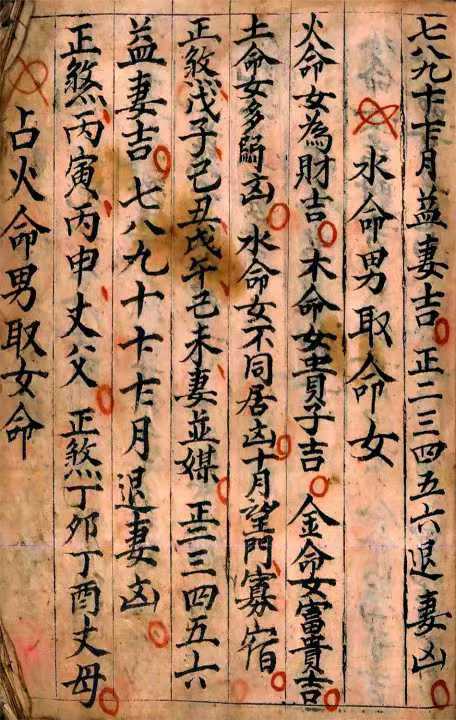 七八九十十一十二月益妻吉 正二三四五六退妻凶
水命男取命女
火命女為財吉 木命女貴子吉 金命女富貴吉
土命女多凶 水命女不同居凶十月望門寡宿
正煞戊子己丑戊午己未妻並媒 正二三四五六
益妻吉 七八九十十一十二月退妻凶
正煞丙寅丙申丈父 正煞丁卯丁酉丈母
占火命男取女命